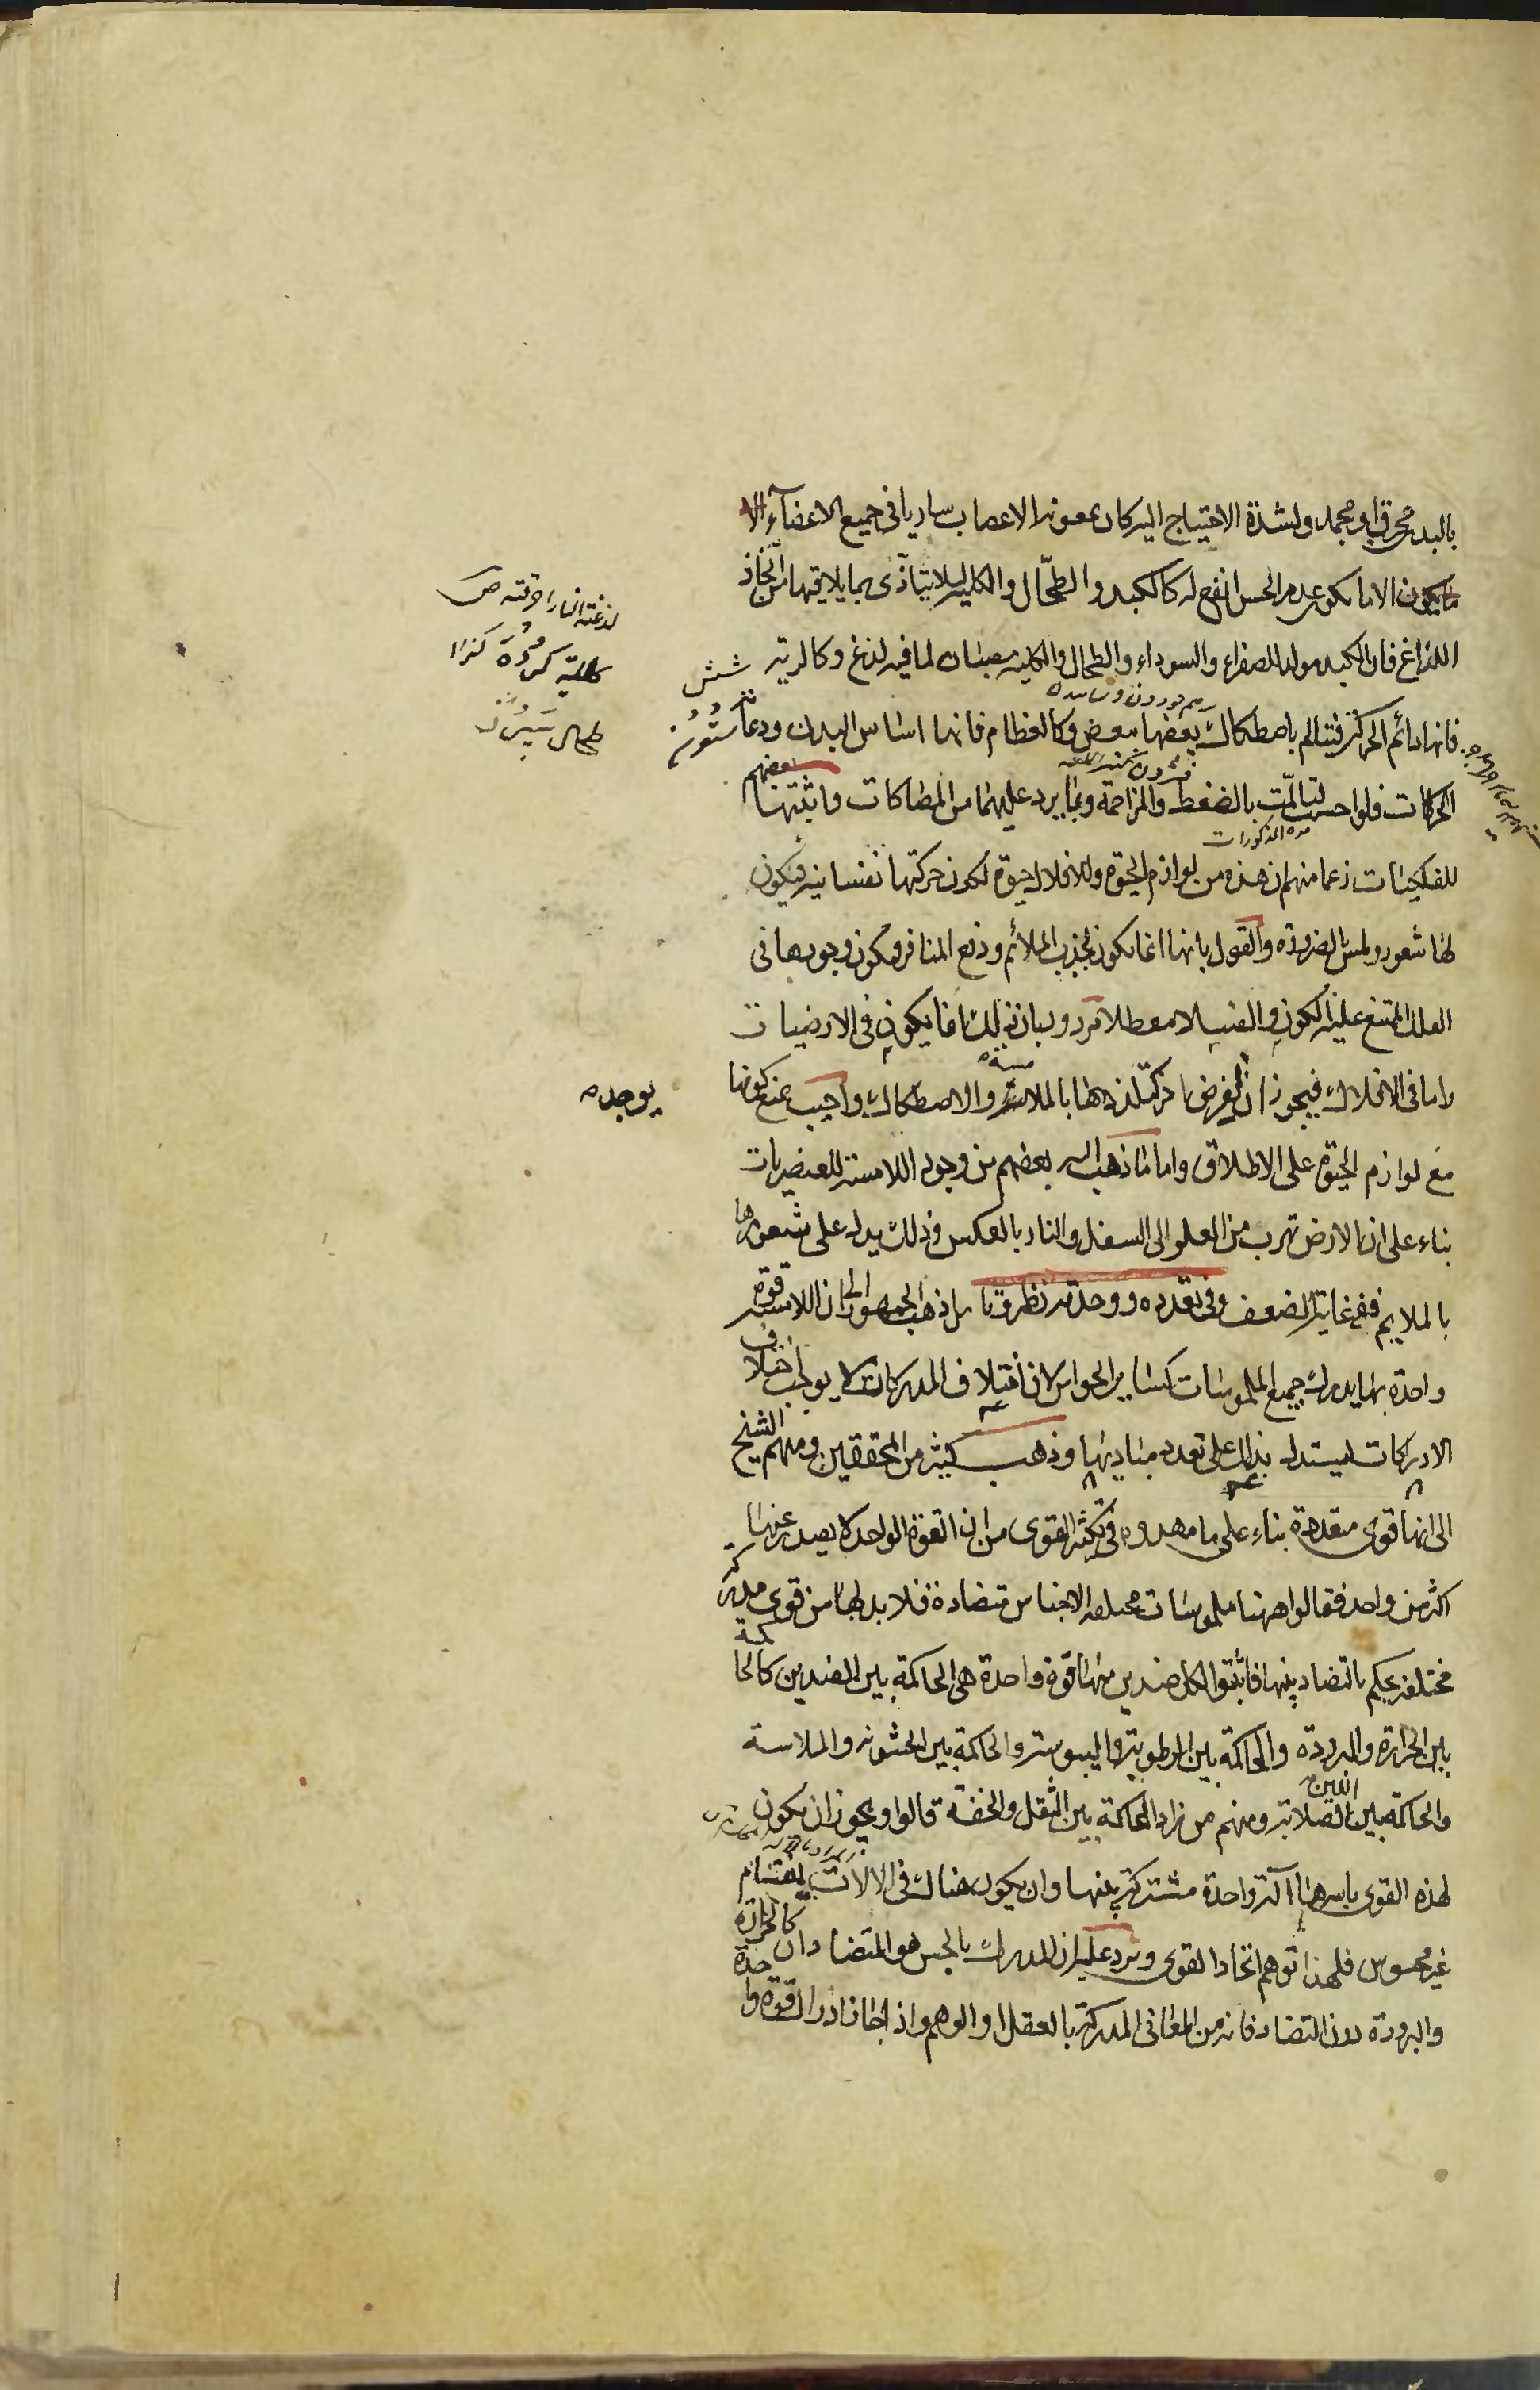 بالبدن محرق او مجمد ولشدة الاحتياج اليه كان بمعونة الاعصاب ساريا فى جميع الاعضآء الا
ما يكون الا ما يكون عدم الحس انفع له كالكبد والطحّال والكلية ليلا يتأذّى بما يلاقيها من الحّاد
اللذاغ فان الكبد مولد للصفراء والسوداء والطحال والكلية مصبان لما فيه لذغ وكالرية
شش
فانها دائم الحركة فيتالم باصطكاك بعضها ببعض وكالعظام فانها اساس البدن ودعامة
ستون
الحركات فلو احست لتالمّت بالضغط والمزاحمة وبما يرد عليها من المصاكات واثبتها بعضهم
هذه المذكورات
للفلكيات زعما منهم ان هذه من لوازم الحيوة وللافلاك حيوة لكون حركتها نفسانية فيكون
لها شعور ولمس بالضرورة والقول بانها انما يكون لجذب الملائم ودفع المنافر فيكون وجودها فى
الفلك الممتنع عليه الكون والفساد معطلا مردود بان ذلك انما يكون فى الارضيات
واما فى الافلاك فيجوز ان يكون لغرض اخر كتلذذها بالملامسة والاصطكاك واجيب بمنع كونها
يوجد
من لوازم الحيوة على الاطلاق واما ما ذهب اليه بعضهم من وجود اللامسة للعنصريات
بناء على ان الارض تهرب من العلو الى السفل والنار بالعكس وذلك يدل على شعورها
بالملايم ففى غاية الضعف وفى تعدده ووحدته نظر بل ذهب الجمهور الى ان اللامسة قوة
واحدة بها يدرك جميع الملموسات كساير الحواس لان اختلاف المدركات لا يوجب اختلاف
الادراكات ليستدل بذلك على تعدد مباديها وذهب كثير من المحققين ومنهم الشيخ
الى انها قوى متعددة بناء على ما مهدوه فى تكثر القوى من ان القوة الواحدة لا يصدر عنها
اكثر من واحد فقالوا ههنا ملموسات مختلفة الاجناس متضادة فلا بد لها من قوى مدركة
مختلفة يحكم بالتضاد بينها فاثبتوا لكل ضدين منها قوة واحدة هى الحاكمة بين الضدين كالحاكمة
بين الحرارة والبرودة والحاكمة بين الرطوبة واليبوسة والحاكمة بين الخشونة والملاسة
والحاكمة بين اللين والصلابة ومنهم من زاد الحاكمة بين الثقل والخفة قالوا ويجوز ان يكون
لهذه القوى باسرها آلة واحدة مشتركة بينها وان يكون هناك فى الالات انقسام
غير محسوس فلهذا توهم اتحاد القوى ويرد عليه ان المدرك بالحس هو المتضادان كالحرارة
والبرودة دون التضاد فانه من المعانى المدركة بالعقل او الوهم واذا جاز ادراك قوة واحدة
لذغته النار احرقته ص
كلية كرده كنز
طحال سپرز